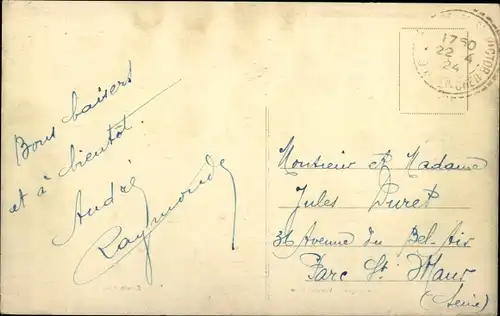 Bons baisers
et à bientôt.
André
Raymonde
1750
22 4
24
Monsieur et Madame
Jules Duret
36 Avenue du Bel-Air
Parc St Maur
(Seine)